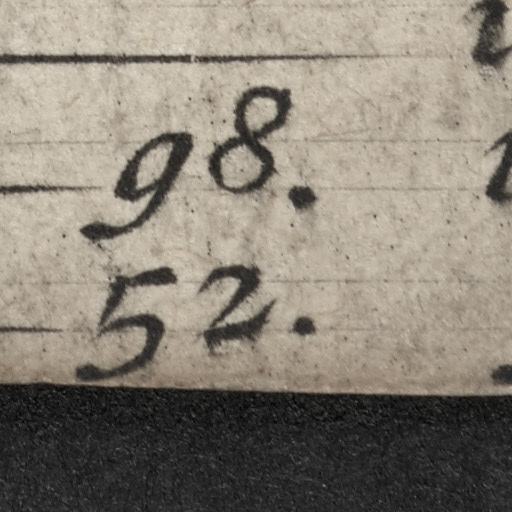 98.
52.